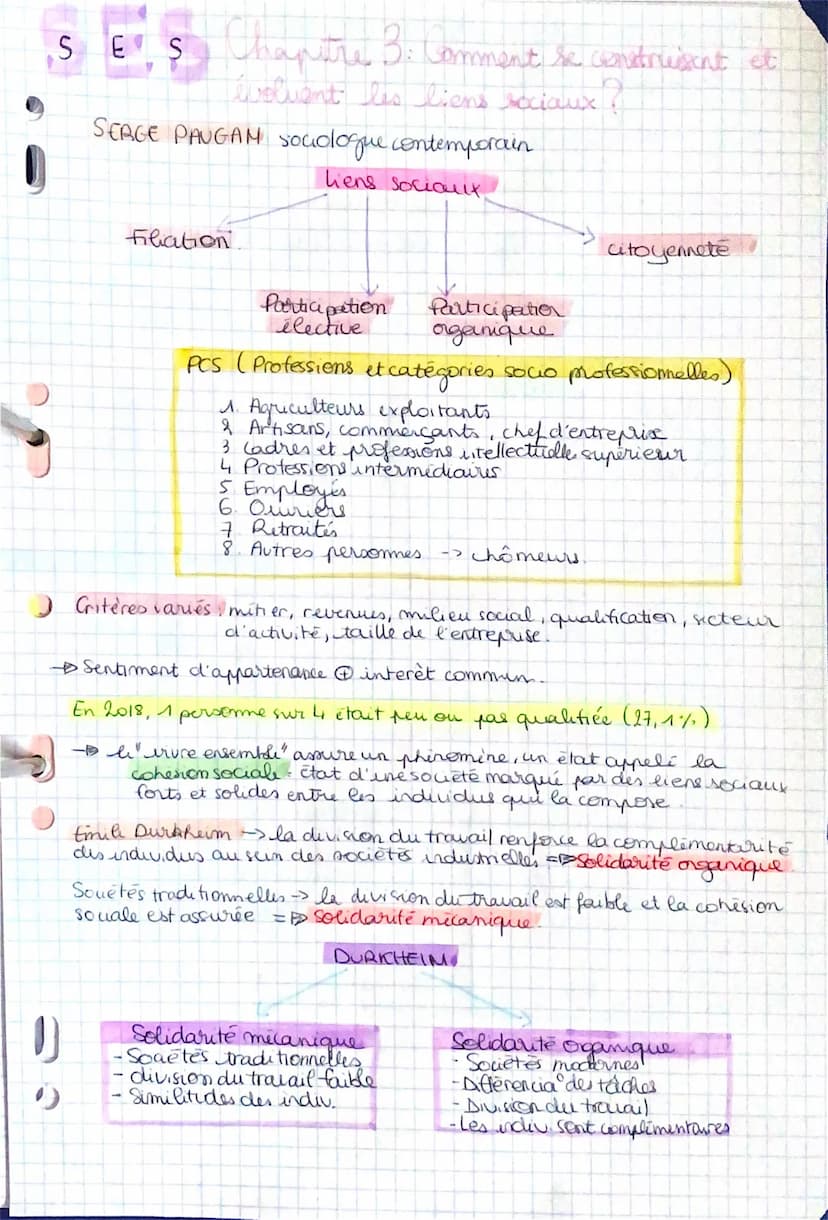 SES Chapitre 3: Comment se construisent et
évoluent les liens sociaux ?
SERGE PAUGAM sociologue contemporain
liens sociaux
filiation
citoyenneté
Participation
élective
Participation
organique
PCS (Professions et catégories socio professionnelles)
1. Agriculteurs exploitants
2 Artisans, commerçants, chef d'entreprise
3 Cadres et professions intellectuelle supérieur
4 Professions intermédiaires
5 Employés
6. Ouvriers
7 Retraités
8. Autres personnes -> chômeurs.
Critères variés : métier, revenues, milieu social, qualification, secteur
d'activité, taille de l'entreprise.
-> Sentiment d'appartenance ⊕ interêt commun.
En 2018, 1 personne sur 4 était peu ou pas qualifiée (27,1%)
-> le "vivre ensemble" assure un phénomène, un état appelé la
cohésion sociale : état d'une société marqué par des liens sociaux
forts et solides entre les individus qui la compose.
Emile Durkheim -> la division du travail renforce la complémentarité
des individus au sein des sociétés industrielles => Solidarité organique.
Sociétés traditionnelles -> la division du travail est faible et la cohésion
sociale est assurée => Solidarité mécanique.
DURKHEIM
Solidarité mécanique
- Sociétés traditionnelles
- division du travail faible
- Similitudes des indiv.
Solidarité oganique
- Sociétés modernes
- Différencia° des tâches
- Division du travail
- Les indiv. sont complémentaires